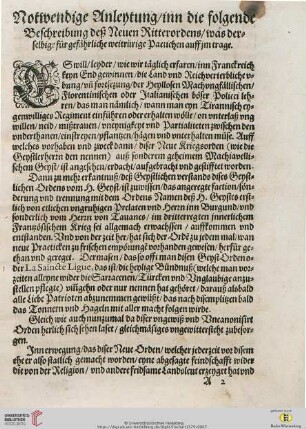 Notwendige Anleytung/inn die folgende
Beschreibung deß Neuen Ritterordens/was der-
selbig für gefährliche weitwürige Pactichen auff jm trage.
ES will/leyder/wie wir täglich erfaren/inn Franckreich
keyn End gewinnen/die Land und Reichverterbliche
übung und fortsetzung der Heyllosen Machynafällischen/
Florentinischen oder Italianischen böser Policei lehr-
stucken/das man nämlich/wann man eyn Tirannisch ey-
genwilliges Regiment einführen oder erhalten wölle/on unterlaß un-
willen/neid/mißtrauen/untreuigkeyt und Partialiteten zwischen den
underthanen/einstreyen/pflantzen/hägen und underhalten müse. Auff
welches vorhaben und zweck dann/diser Neue Kriegsorden (wie die
Geystlerherrn den nennen) auß sonderen geheimen Machiawelli-
schem Geyst/ist angesehen/erdacht/auffgebracht und gestifftet worden.
Dann zu mehr erkantnuß/deß Geystlichen verstands dises Geyst-
lichen Ordens vom H. Geyst/ist zuwissen/das angeregte faction/sön-
derung und trennung mit dem Ordens Namen deß H. Geysts erst-
lich von etlichen ungruhigen Prelaten und Herren inn Burgund/und
sonderlich vom Herrn von Tauanes/im dritteregten innerlichem
Französischem Krieg sei allgemach erwachssen/auffkommen und
entstanden. Und von der zeit her/hat sich der Orde zu jedem mal/wann
neue Practicken zu frischen empörung vorhanden gewesen/herfür ge-
than und gereget. Dermasen/das so offt man disen Geyst-Ordeno-
der La Saincte Ligue, das ist die heylige Bündnuß/(welche man vor-
zeiten alleyn wider die Saracenen/Türcken und Unglaubige anzu-
stellen pflegte) villeicht oder nur nennen hat gehört/darauß alsbald
alle Liebe Patrioten abzunemmen gewüßt/das nach disem plitzen bald
das Tonnern und Hageln mit aller macht folgen wirde.
Gleich wie auch nun zumal da diser ungewiß und Uncanonisiert
Orden herlich sich sehen laset/gleichmäsiges ungewitters ist zubesor-
gen.
Inn erwegung/das diser Neue Orden/welcher jederzeit vor disem
ehe er also stattlich gemacht worden/eyne abgesagte feindschafft wider
die von der Religion/und andere fridsame Landsleut erzeyget hat und
A 2